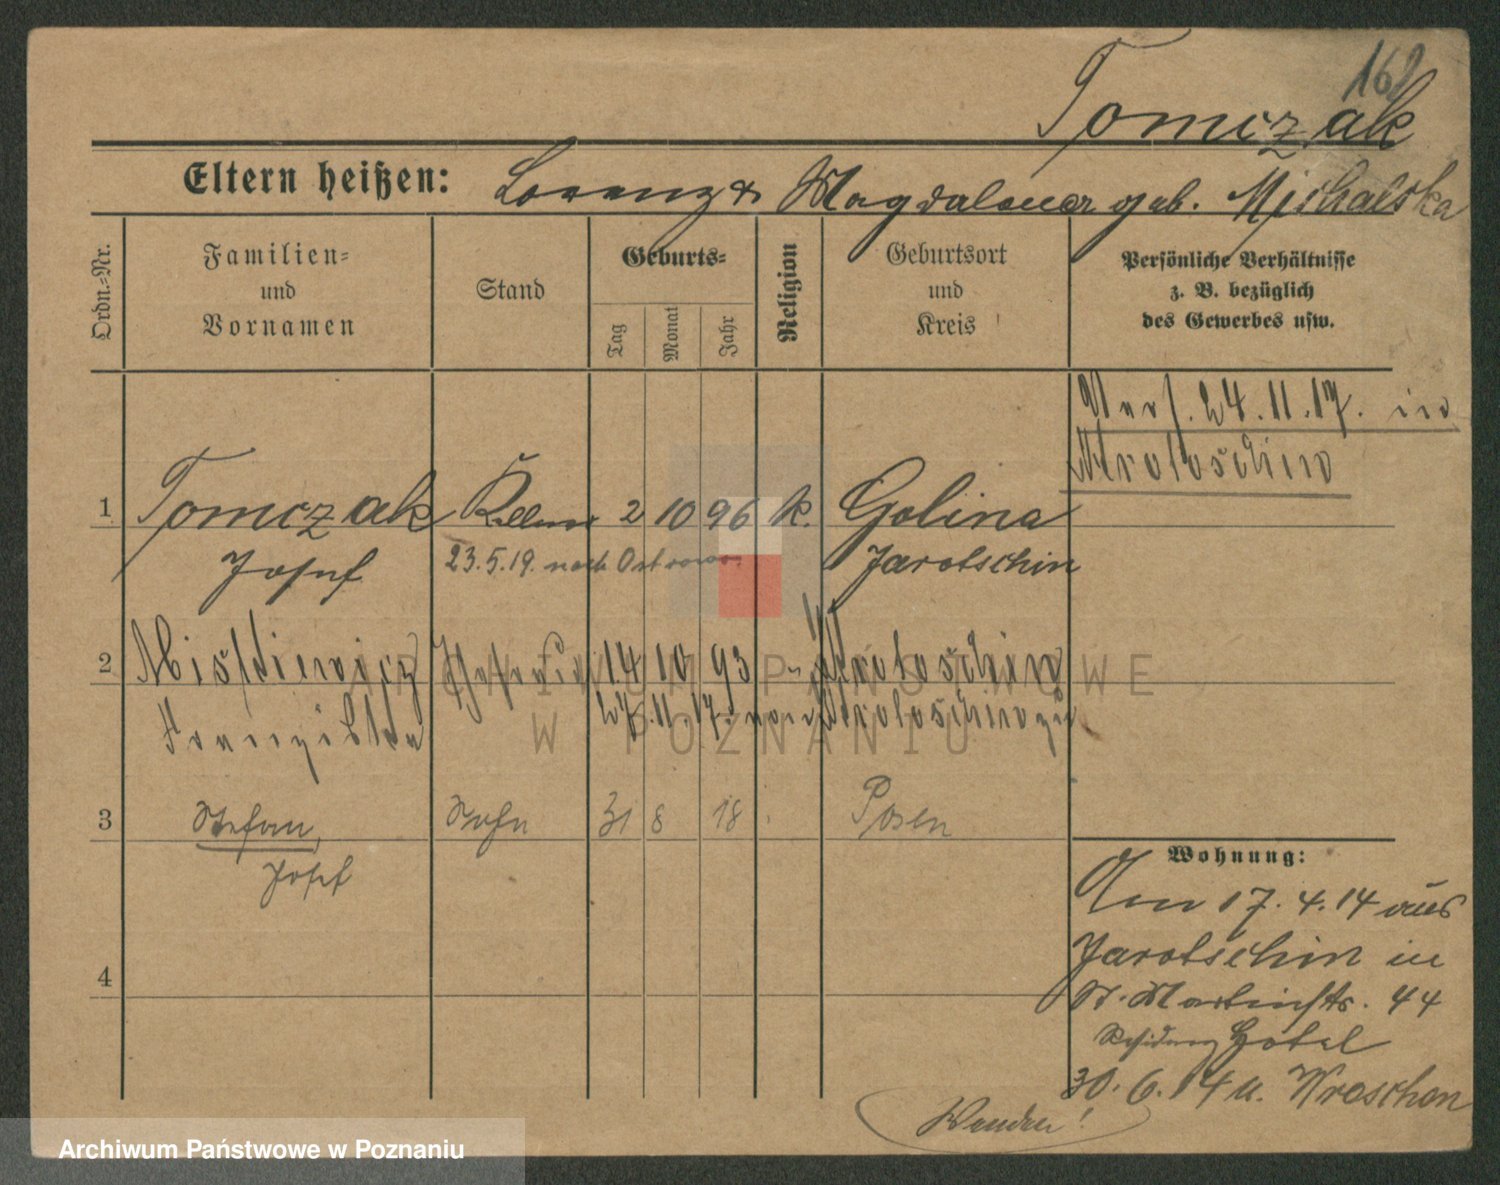 162
Tomczak
Eltern heißen: Lorenz & Magdalena geb. Michalska
Ordn.-Nr.
Familien- und Vornamen
Stand
Geburts-
Tag
Monat
Jahr
Religion
Geburtsort und Kreis
Persönliche Verhältnisse z. B. bezüglich des Gewerbes usw.
Verh. 24.11.17. in
Krotoschin
1 Tomczak Kellner 2 10 96 k. Golina
Josef 23.5.19. nach Ostrowo. Jarotschin
2 Ehefrau 14 10 93 " Krotoschin
Franziska 27.11.17. von Krotoschin zu
3 Stefan, Sohn 31 8 18 Posen
Josef
4
Wohnung:
Am 17.4.14 aus
Jarotschin in
St. Martinstr. 44
Hotel
30.6.14 n. Wreschen
Wenden!
ARCHIWUM PAŃSTWOWE
W POZNANIU
Archiwum Państwowe w Poznaniu